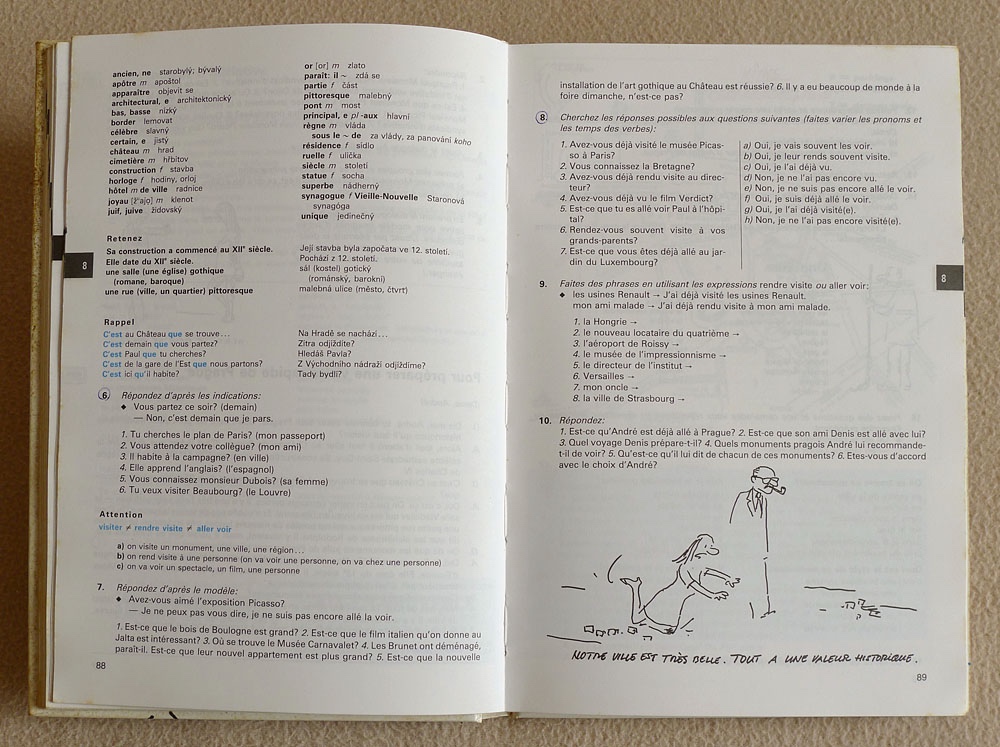 ancien, ne starobylý; bývalý
apôtre m apoštol
apparaître objevit se
architectural, e architektonický
bas, basse nízký
border lemovat
célèbre slavný
certain, e jistý
château m hrad
cimetière m hřbitov
construction f stavba
horloge f hodiny, orloj
hôtel m de ville radnice
joyau [žᵘajo] m klenot
juif, juive židovský
or [or] m zlato
paraît: il ~ zdá se
partie f část
pittoresque malebný
pont m most
principal, e pl -aux hlavní
règne m vláda
sous le ~ de za vlády, za panování koho
résidence f sídlo
ruelle f ulička
siècle m století
statue f socha
superbe nádherný
synagogue f Vieille-Nouvelle Staronová
synagóga
unique jedinečný
Retenez
Sa construction a commencé au XIIᵉ siècle. Její stavba byla započata ve 12. století.
Elle date du XIIᵉ siècle. Pochází z 12. století.
une salle (une église) gothique sál (kostel) gotický
(romane, baroque) (románský, barokní)
une rue (ville, un quartier) pittoresque malebná ulice (město, čtvrť)
8
Rappel
C'est au Château que se trouve... Na Hradě se nachází...
C'est demain que vous partez? Zítra odjíždíte?
C'est Paul que tu cherches? Hledáš Pavla?
C'est de la gare de l'Est que nous partons? Z Východního nádraží odjíždíme?
C'est ici qu'il habite? Tady bydlí?
6. Répondez d'après les indications:
◆ Vous partez ce soir? (demain)
— Non, c'est demain que je pars.
1. Tu cherches le plan de Paris? (mon passeport)
2. Vous attendez votre collègue? (mon ami)
3. Il habite à la campagne? (en ville)
4. Elle apprend l'anglais? (l'espagnol)
5. Vous connaissez monsieur Dubois? (sa femme)
6. Tu veux visiter Beaubourg? (le Louvre)
Attention
visiter ≠ rendre visite ≠ aller voir
a) on visite un monument, une ville, une région...
b) on rend visite à une personne (on va voir une personne, on va chez une personne)
c) on va voir un spectacle, un film, une personne
7. Répondez d'après le modèle:
◆ Avez-vous aimé l'exposition Picasso?
— Je ne peux pas vous dire, je ne suis pas encore allé la voir.
1. Est-ce que le bois de Boulogne est grand? 2. Est-ce que le film italien qu'on donne au
Jalta est intéressant? 3. Où se trouve le Musée Carnavalet? 4. Les Brunet ont déménagé,
paraît-il. Est-ce que leur nouvel appartement est plus grand? 5. Est-ce que la nouvelle
88
installation de l'art gothique au Château est réussie? 6. Il y a eu beaucoup de monde à la
foire dimanche, n'est-ce pas?
8. Cherchez les réponses possibles aux questions suivantes (faites varier les pronoms et
les temps des verbes):
1. Avez-vous déjà visité le musée Picas-
so à Paris?
2. Vous connaissez la Bretagne?
3. Avez-vous déjà rendu visite au direc-
teur?
4. Avez-vous déjà vu le film Verdict?
5. Est-ce que tu es allé voir Paul à l'hôpi-
tal?
6. Rendez-vous souvent visite à vos
grands-parents?
7. Est-ce que vous êtes déjà allé au jar-
din du Luxembourg?
a) Oui, je vais souvent les voir.
b) Oui, je leur rends souvent visite.
c) Oui, je l'ai déjà vu.
d) Non, je ne l'ai pas encore vu.
e) Non, je ne suis pas encore allé le voir.
f) Oui, je suis déjà allé le voir.
g) Oui, je l'ai déjà visité(e).
h) Non, je ne l'ai pas encore visité(e).
8
9. Faites des phrases en utilisant les expressions rendre visite ou aller voir:
◆ les usines Renault → J'ai déjà visité les usines Renault.
mon ami malade → J'ai déjà rendu visite à mon ami malade.
1. la Hongrie →
2. le nouveau locataire du quatrième →
3. l'aéroport de Roissy →
4. le musée de l'impressionnisme →
5. le directeur de l'institut →
6. Versailles →
7. mon oncle →
8. la ville de Strasbourg →
10. Répondez:
1. Est-ce qu'André est déjà allé à Prague? 2. Est-ce que son ami Denis est allé avec lui?
3. Quel voyage Denis prépare-t-il? 4. Quels monuments pragois André lui recommande-
t-il de voir? 5. Qu'est-ce qu'il lui dit de chacun de ces monuments? 6. Etes-vous d'accord
avec le choix d'André?
NOTRE VILLE EST TRÈS BELLE. TOUT A UNE VALEUR HISTORIQUE.
89